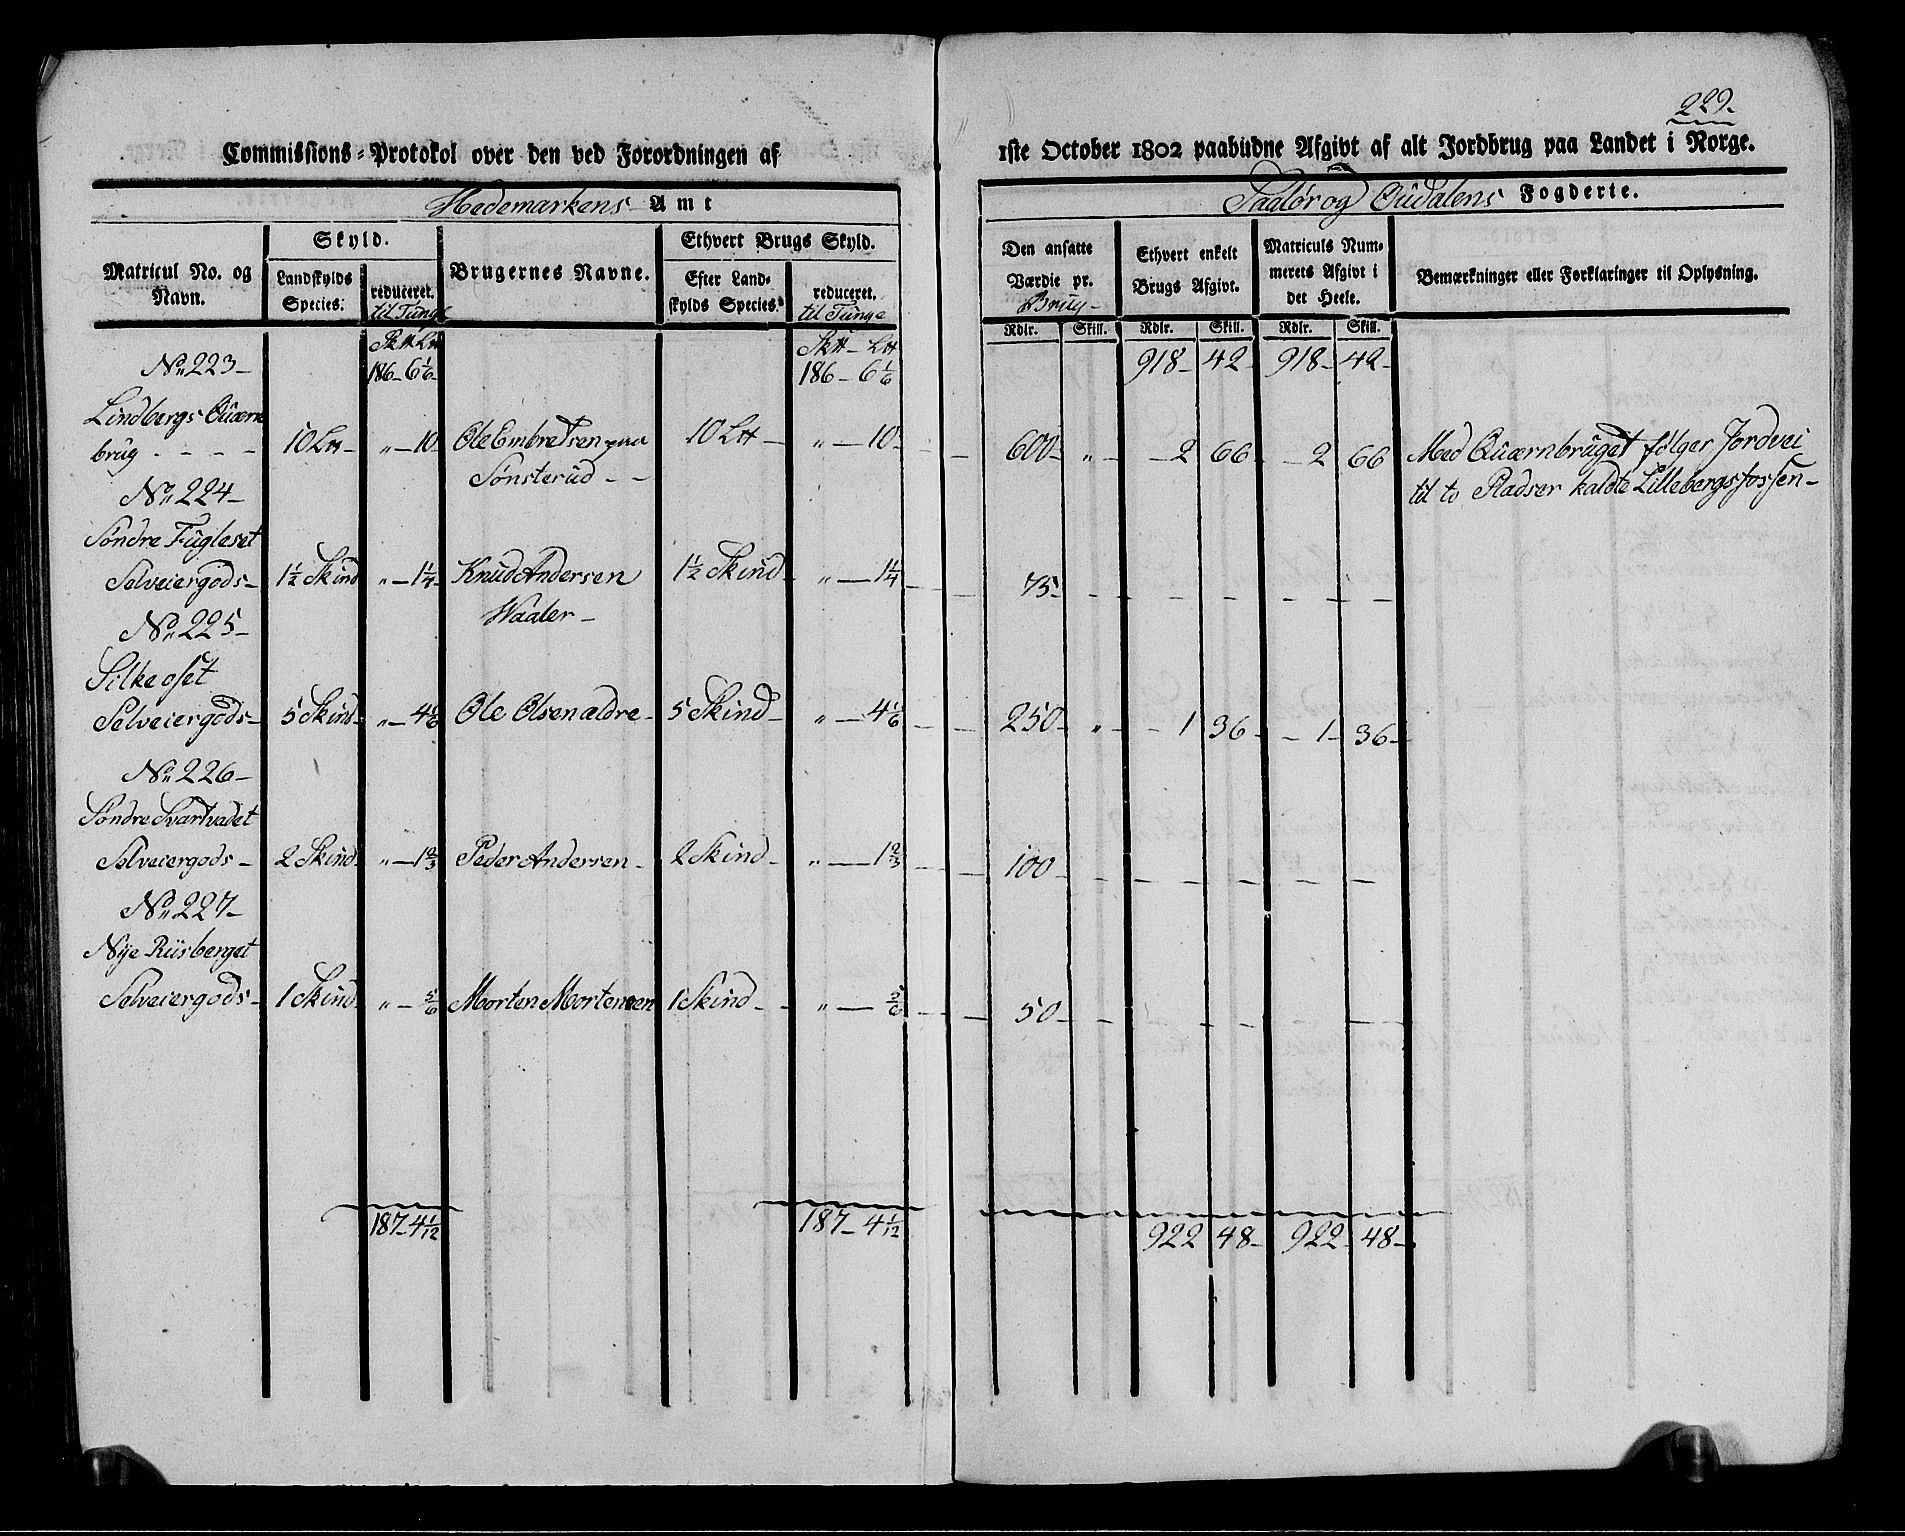 229.
Commissions-Protokol over den ved Forordningen af 1ste October 1802 paabudne Afgivt af alt Jordbrug paa Landet i Norge.
Hedemarkens Amt
Soløer og Oudalens Fogderie.
Matricul No. og Navn.
Skyld.
Landskylds Species.
reduceret. til Tunge
Brugernes Navne.
Ethvert Brugs Skyld.
Efter Landskylds Species.
reduceret. til Tunge
Den ansatte Værdie pr. Brug
Ethvert enkelt Brugs Afgivt.
Matriculs Nummerets Afgivt i det Heele.
Bemærkninger eller Forklaringer til Oplysning.
Rdlr. Skill. Rdlr. Skill. Rdlr. Skill.
No 223 –
186 – 6 1/6 186 – 6 1/6 918 – 42 – 918 – 42 –
Lindbergs Quærn
brug – – – – 10 L℔ – „ – 10 – Ole Embretsen paa 10 L℔ – „ – 10 – 600 – „ – 2 66 – 2 66 Med Quærnbruget følger Jordvei
Sønsterud – – til to Pladser kaldte Lillebergsfossen –
No 224 –
Søndre Fugleset
Selveiergods – 1 1/2 Skind „ – 1 1/4 – Knud Andersen 1 1/2 Skind – „ – 1 1/4 75 –
Waaler –
No 225 –
Silkeoset
Selveiergods – 5 Skind – „ – 4 1/6 Ole Olsen ældre – 5 Skind – „ – 4 1/6 250 – „ – 1 36 – 1 – 36 –
No 226 –
Søndre Svartvadet
Selveiergods – 2 Skind – „ – 1 2/3 Peder Andersen – 2 Skind – „ – 1 2/3 100
No 227 –
Nye Riisberget
Selveiergods – 1 Skind „ – 5/6 Morten Mortensen 1 Skind – „ – 5/6 50 –
187 4 1/12 187 – 4 1/12 922 48 – 922 – 48 –